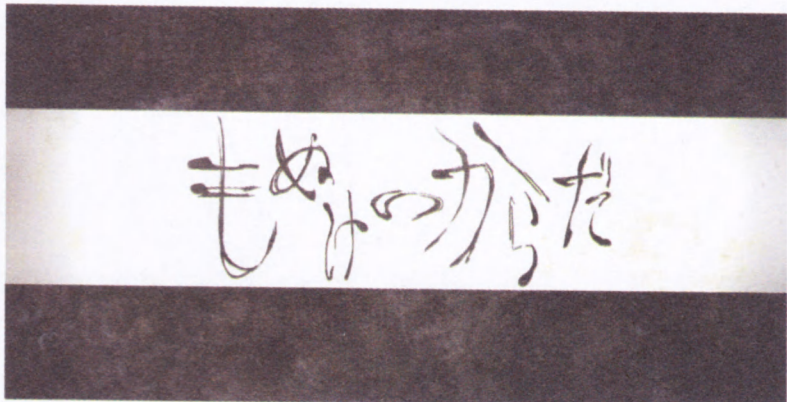 もぬけのからだ